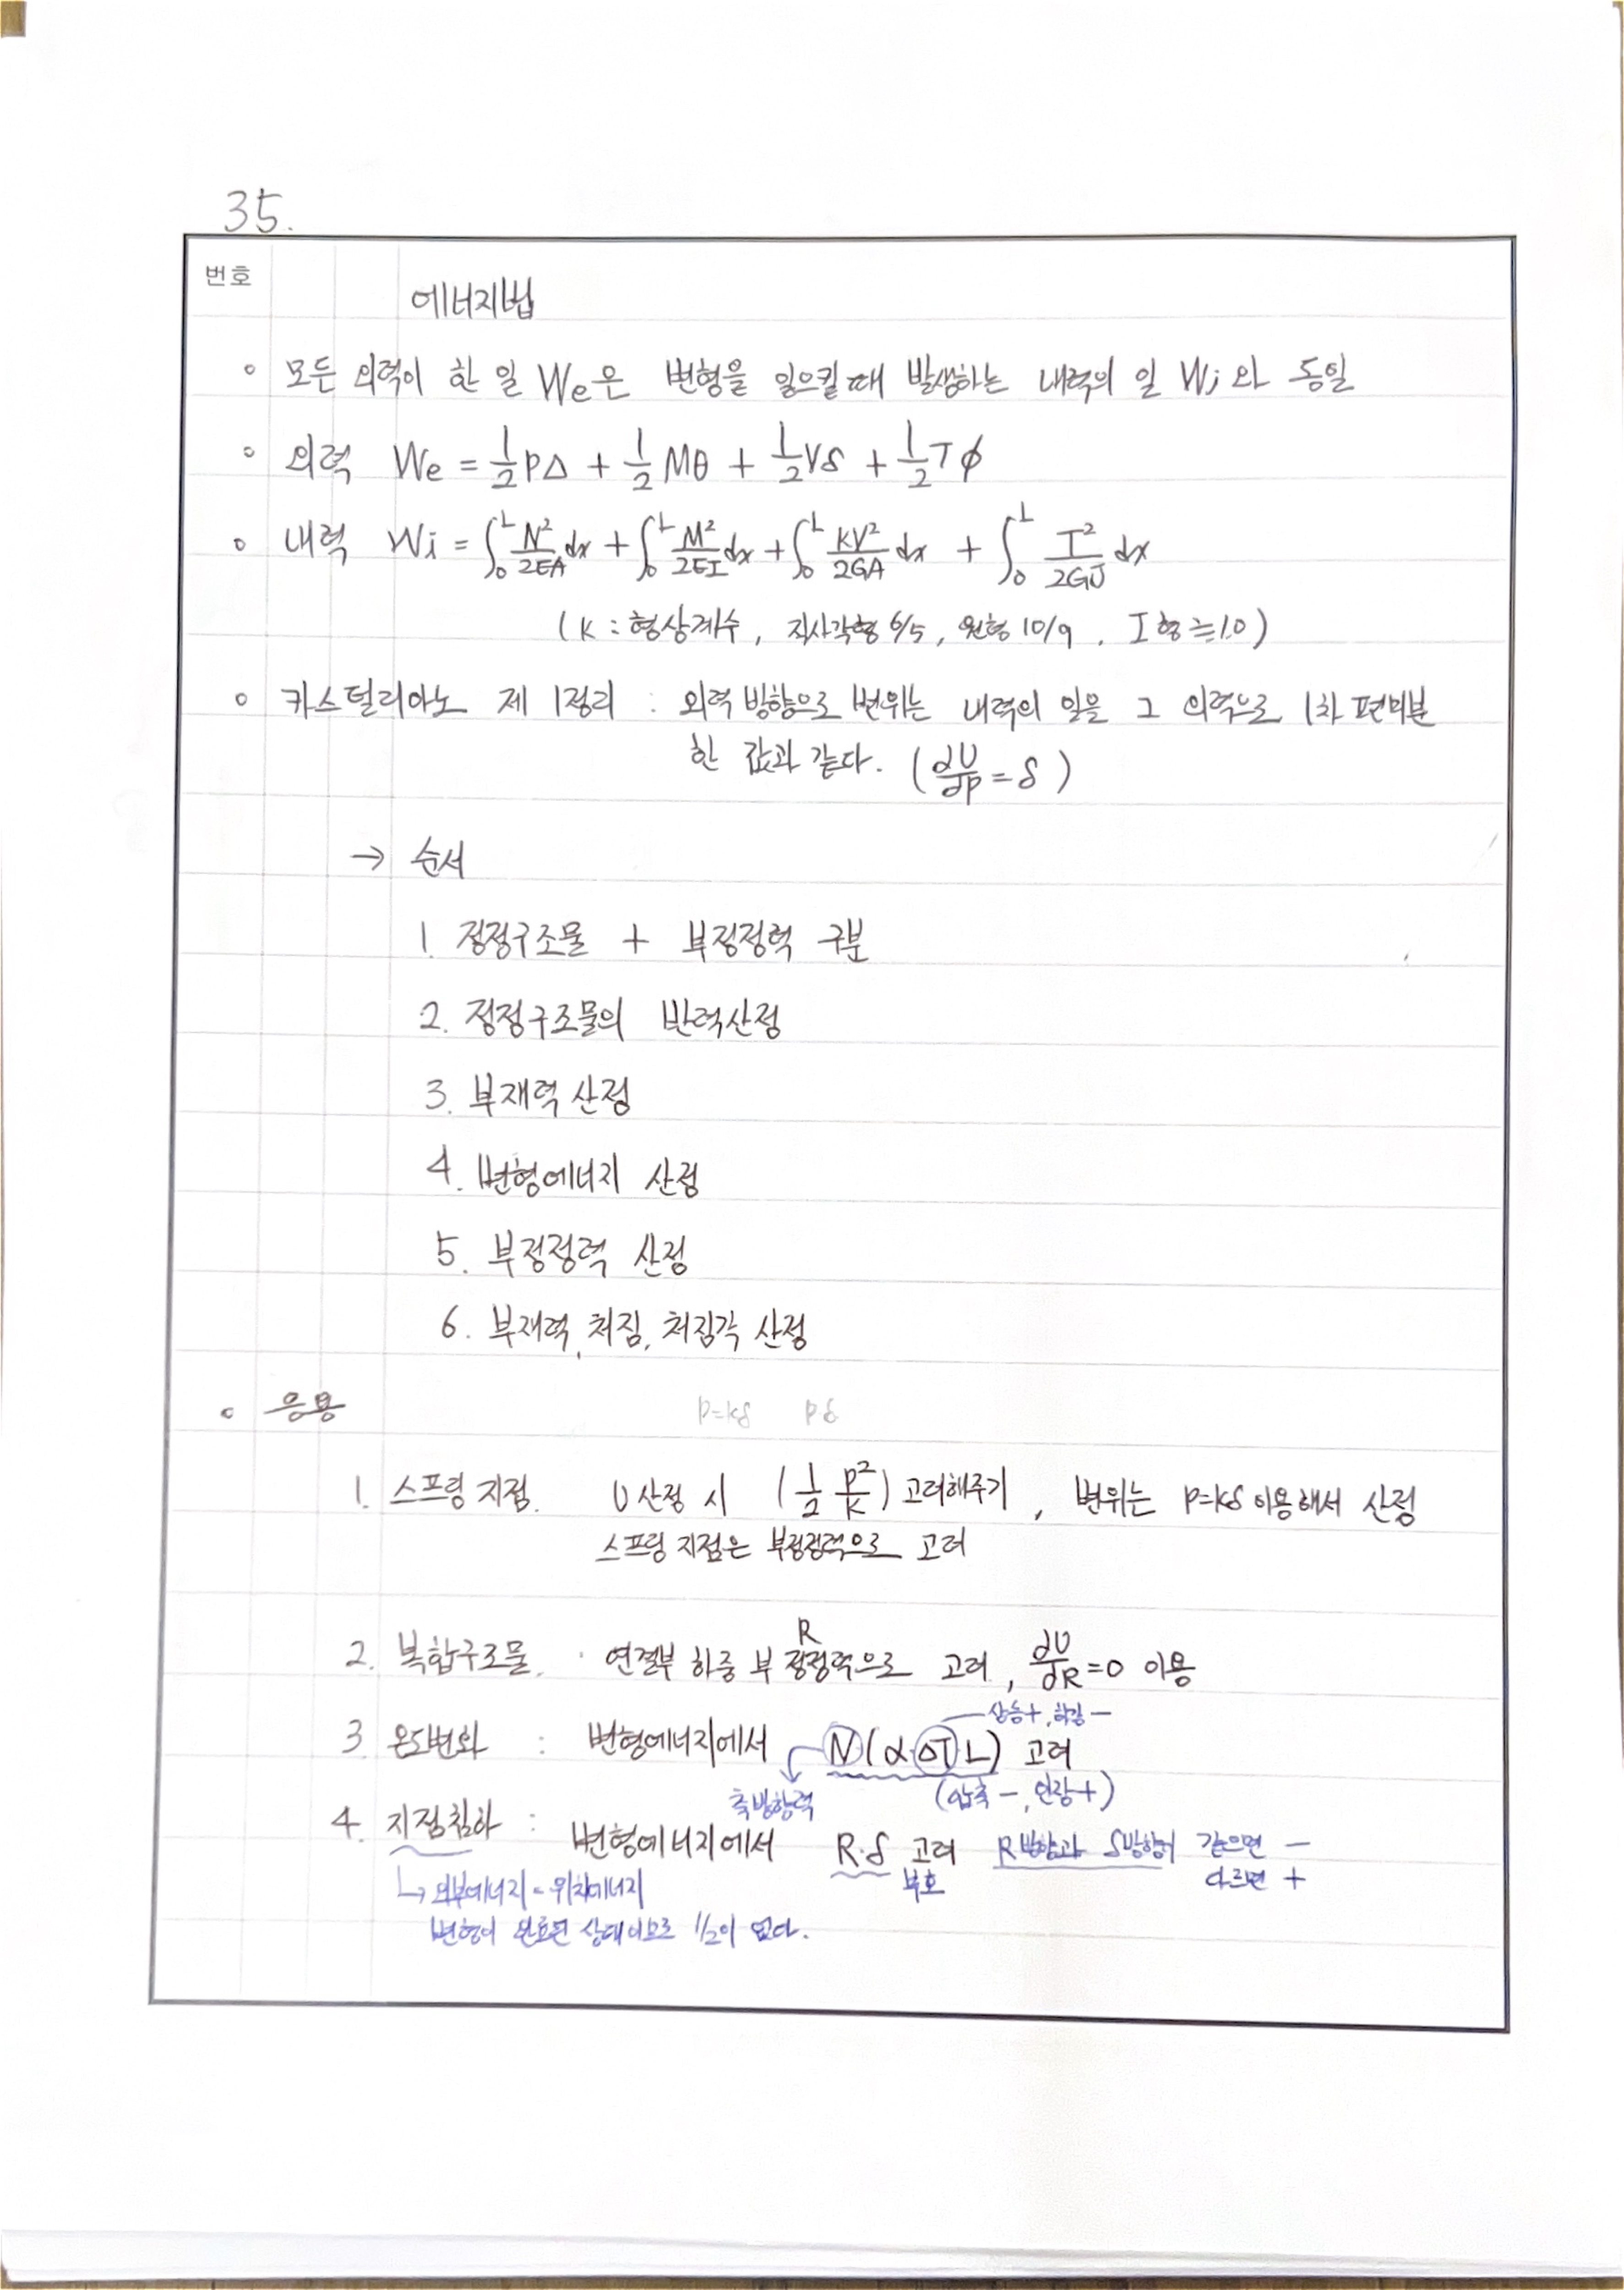 35.
번호
에너지법
◦ 모든 외력이 한 일 We은 변형을 일으킬때 발생하는 내력의 일 Wi 와 동일
◦ 외력 We = 1/2 PΔ + 1/2 Mθ + 1/2 Vδ + 1/2 Tϕ
◦ 내력 Wi = ∫₀ᴸ N²/2EA dx + ∫₀ᴸ M²/2EI dx + ∫₀ᴸ kV²/2GA dx + ∫₀ᴸ T²/2GJ dx
(k : 형상계수, 직사각형 6/5, 원형 10/9, I형 ≒ 1.0)
◦ 카스틸리아노 제 1정리 : 외력 방향으로 변위는 내력의 일을 그 외력으로 1차 편미분
한 값과 같다. (∂U/∂P = δ)
→ 순서
1. 정정구조물 + 부정정력 구분
2. 정정구조물의 반력산정
3. 부재력 산정
4. 변형에너지 산정
5. 부정정력 산정
6. 부재력, 처짐, 처짐각 산정
◦ 응용 P=kδ Pδ
1. 스프링 지점. U산정 시 (1/2 P²/k) 고려해주기, 변위는 P=kδ 이용해서 산정
스프링 지점은 부정정력으로 고려
R
2. 복합구조물. 연결부 하중 부정정력으로 고려, ∂U/∂R = 0 이용
상승+, 하강-
3. 온도변화 : 변형에너지에서 N(α·ΔT·L) 고려
축방향력 (압축-, 인장+)
4. 지점침하 : 변형에너지에서 R·δ 고려 R방향과 δ방향이 같으면 -
↳ 외부에너지 = 위치에너지 부호 다르면 +
변형이 완료된 상태이므로 1/2이 없다.